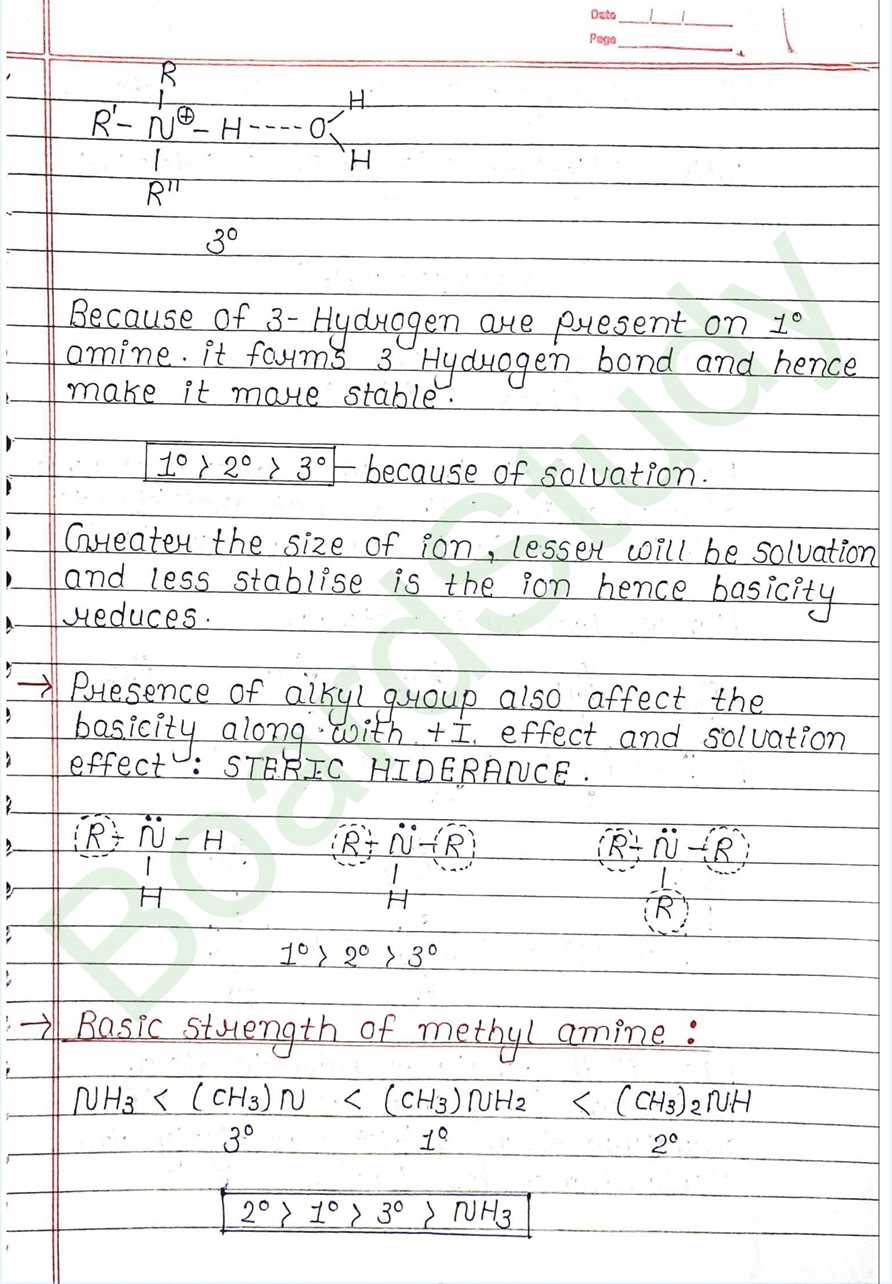 Date / /
Page
R
R'- N⊕- H ---- O
H
H
R"
3°
Because of 3- Hydrogen are present on 1°
amine. it forms 3 Hydrogen bond and hence
make it more stable.
1° > 2° > 3° - because of solvation.
Greater the size of ion, lesser will be solvation
and less stablise is the ion hence basicity
reduces.
→ Presence of alkyl group also affect the
basicity along with +I effect and solvation
effect : STERIC HIDERANCE.
R - N̈ - H R - N̈ - R R - N̈ - R
H H R
1° > 2° > 3°
→ Basic strength of methyl amine :
NH3 < (CH3)N < (CH3)NH2 < (CH3)2NH
3° 1° 2°
2° > 1° > 3° > NH3
BoardStudy